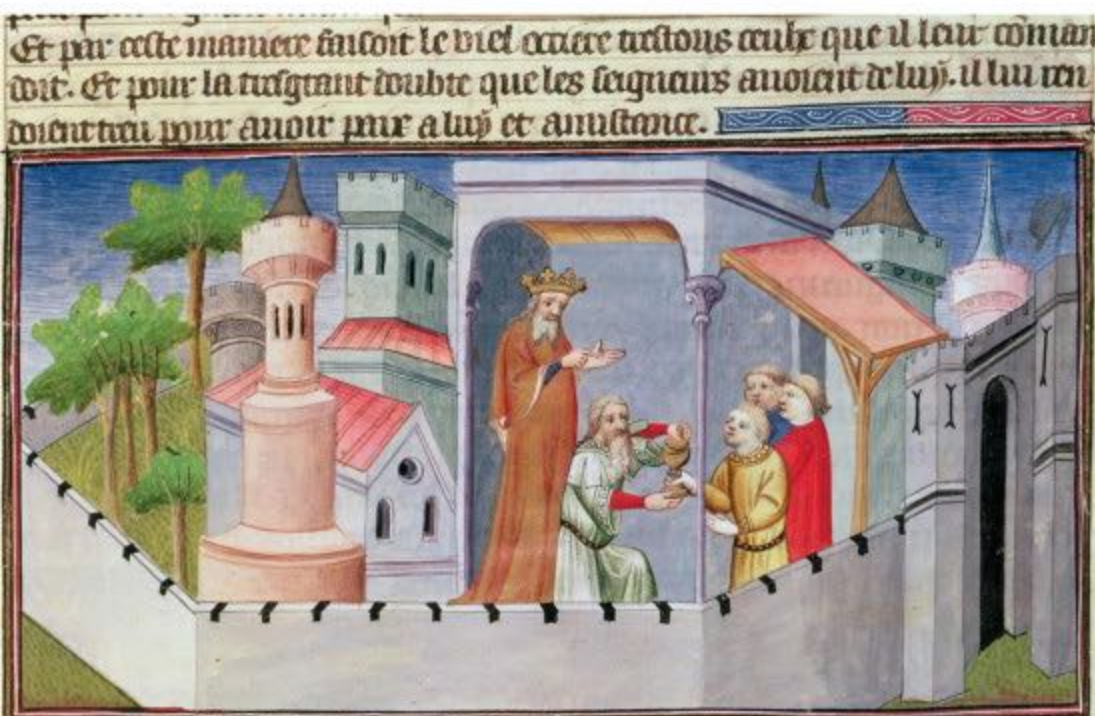 Et par ceste maniere faisoit le viel occiere trestous ceulx que il leur cõman
doit. Et pour la tresgrant doubte que les seigneurs auoient de luy. il lui ren
doient treu pour auoir paix a luy et amistance.